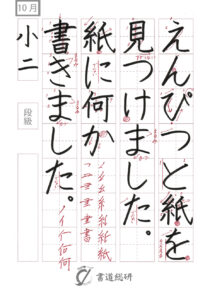 えんぴつと紙を
見つけました。
紙に何か
書きました。
10月
小二
段級
書道総研